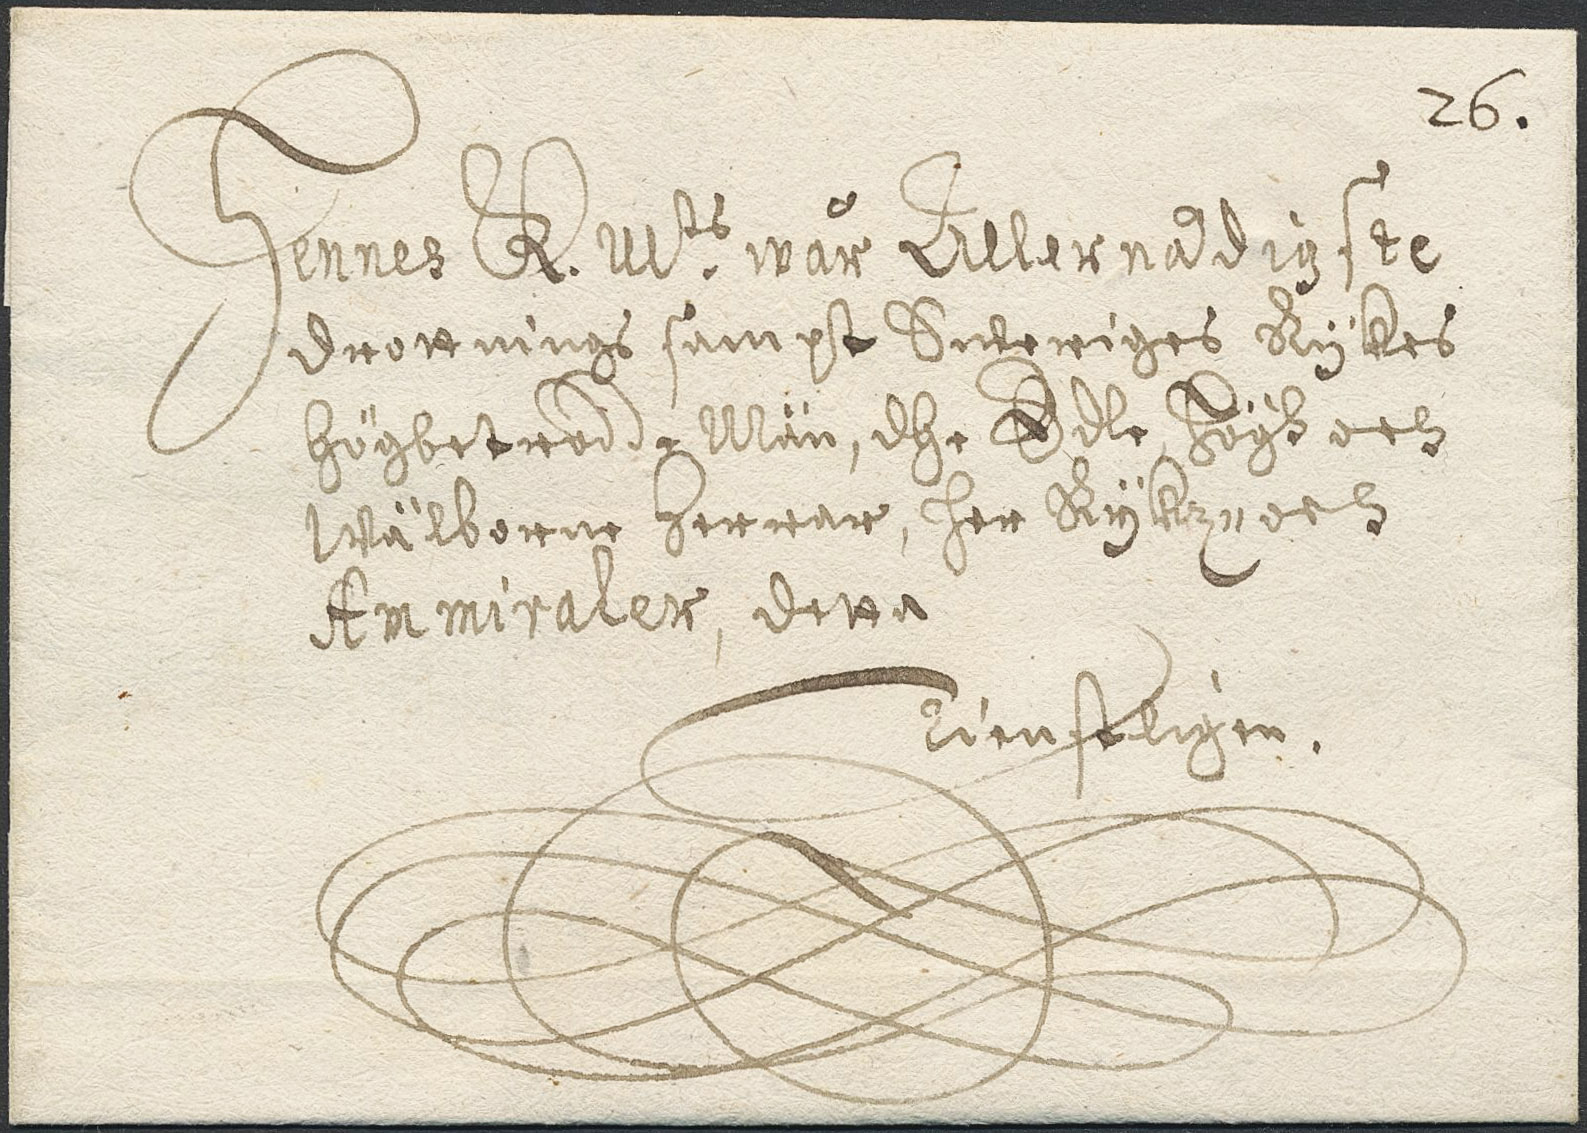 26.
Hennes K. M:ts wår Allernådigste
Drottnings sampt Sweriges Rijkes
högbetrodde Män, dhe Edle, Högh och
Wälborne Herrar, her Rijkz och
Ammiraler, dera
Tienstligen.